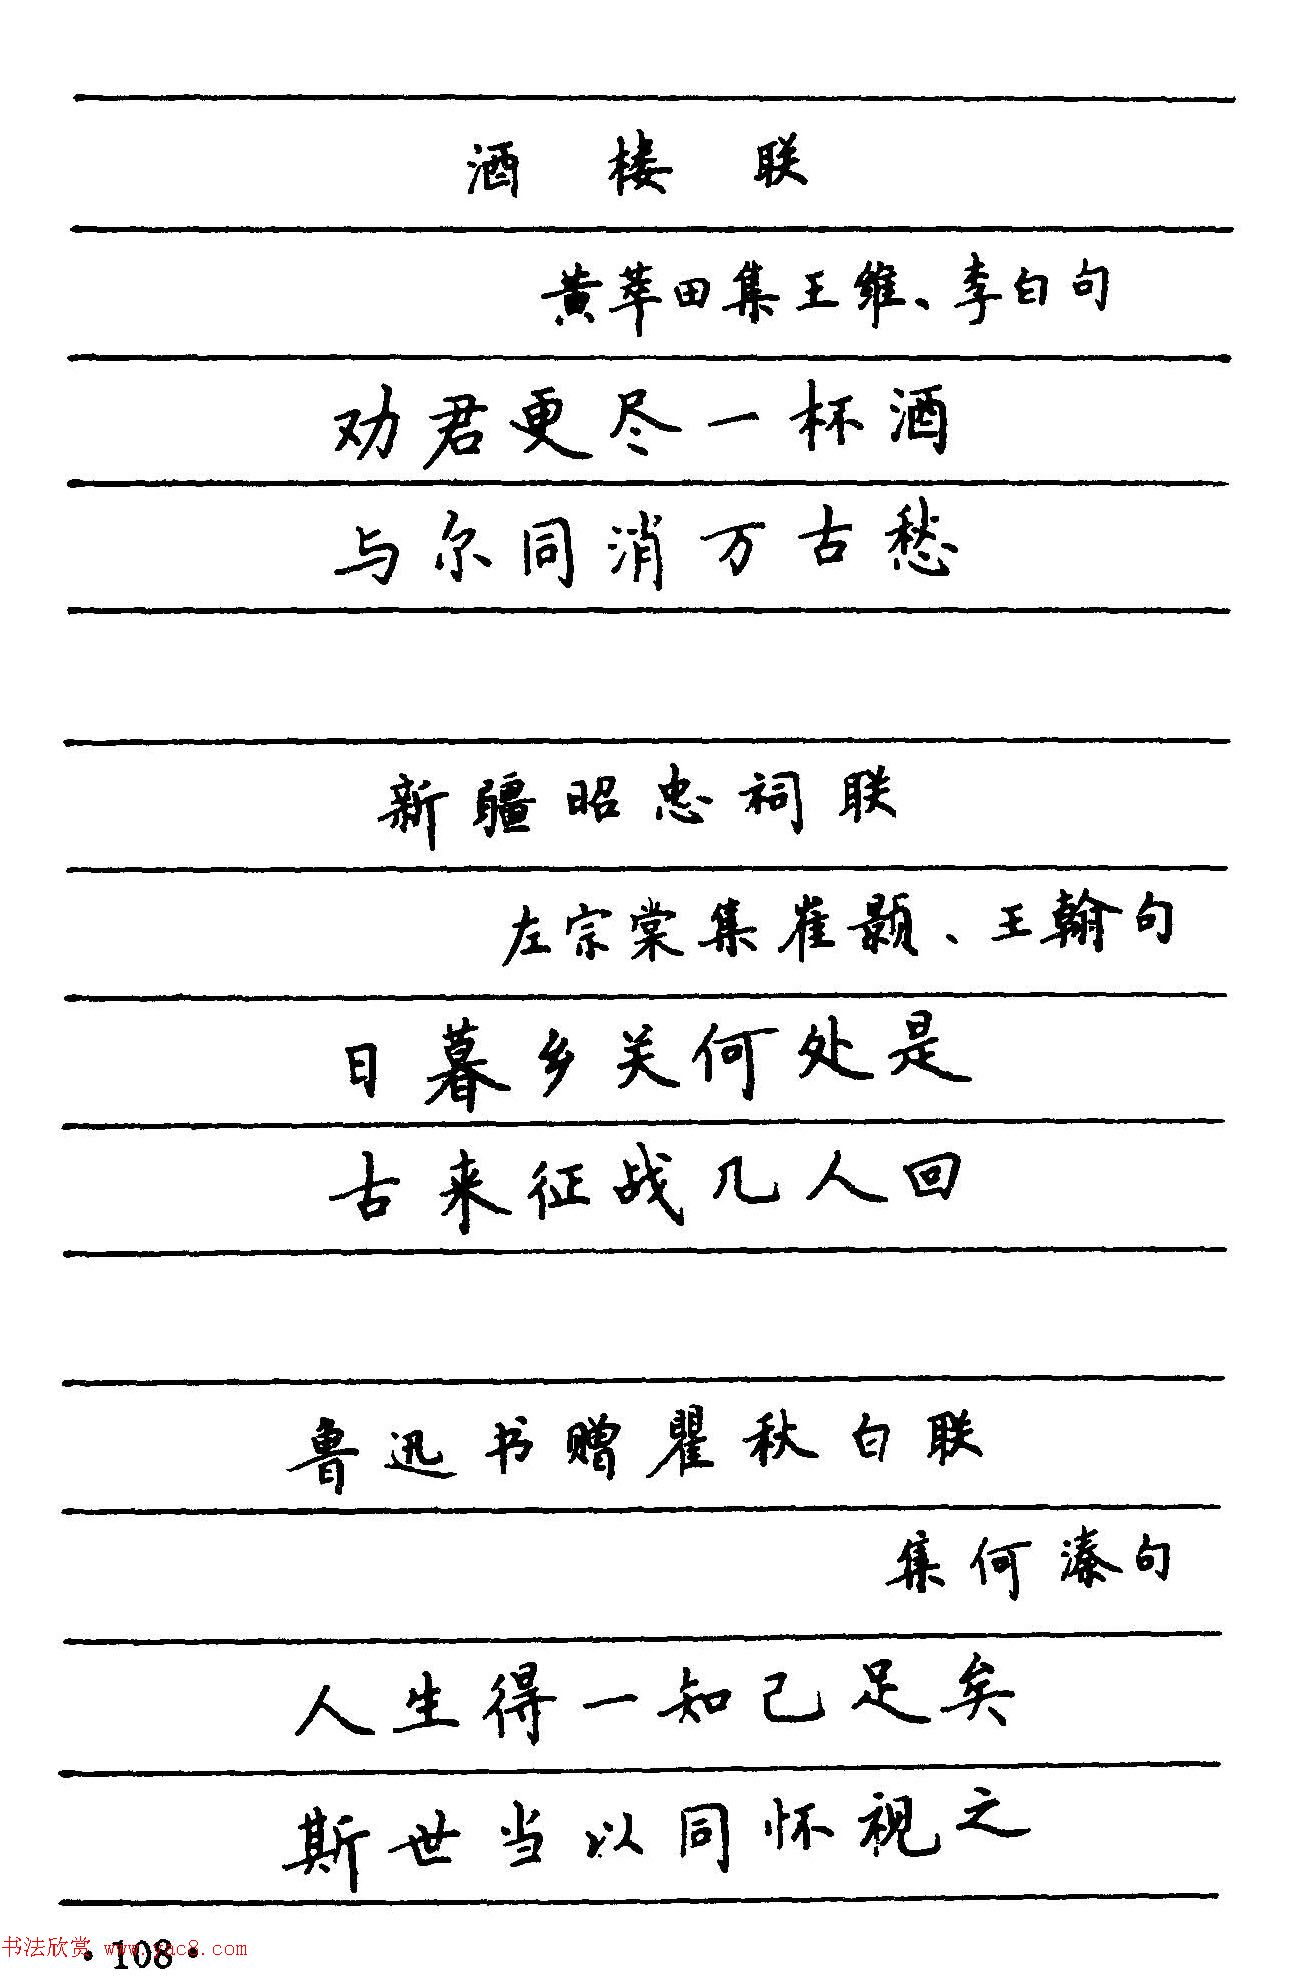 酒楼联
黄萃田集王维、李白句
劝君更尽一杯酒
与尔同消万古愁
新疆昭忠祠联
左宗棠集崔颢、王翰句
日暮乡关何处是
古来征战几人回
鲁迅书赠瞿秋白联
集何溱句
人生得一知己足矣
斯世当以同怀视之
书法欣赏 www.yac8.com
·108·